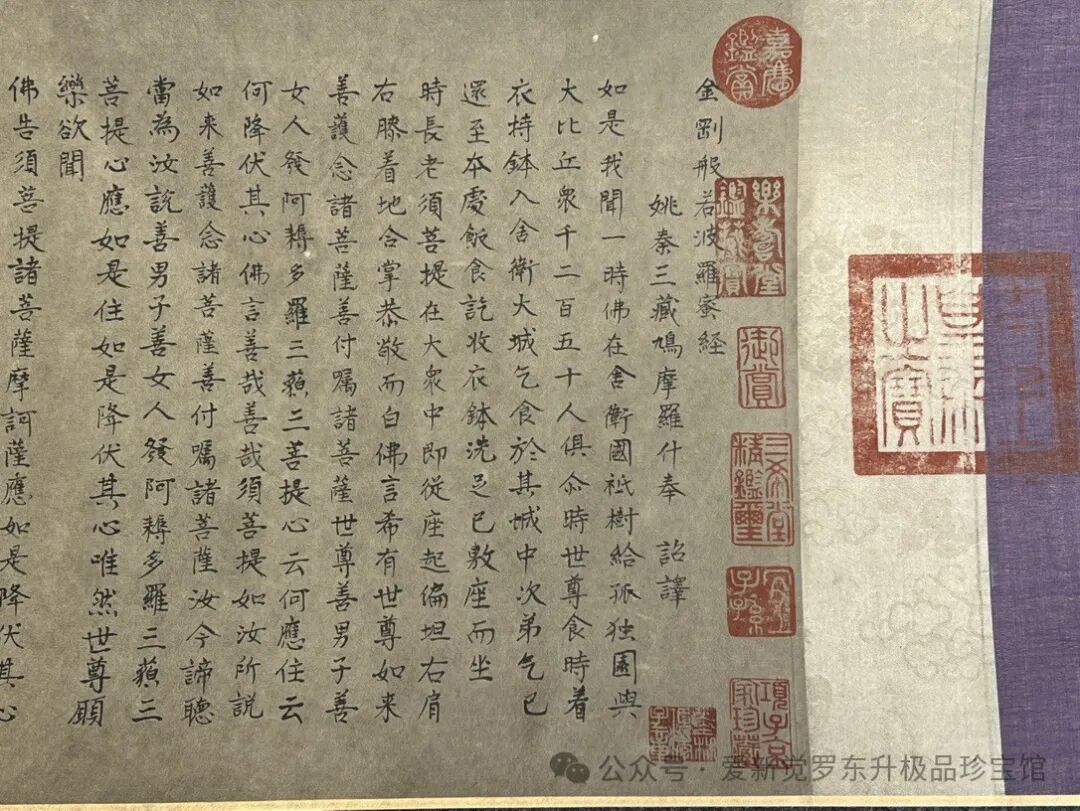 金剛般若波羅蜜経
姚秦三藏鳩摩羅什奉 詔譯
如是我聞一時佛在舍衛國祇樹給孤独園與
大比丘衆千二百五十人俱尒時世尊食時着
衣持鉢入舍衛大城乞食於其城中次弟乞已
還至本處飯食訖收衣鉢洗足已敷座而坐
時長老須菩提在大衆中即従座起偏坦右肩
右膝着地合掌恭敬而白佛言希有世尊如来
善護念諸菩薩善付嘱諸菩薩世尊善男子善
女人發阿耨多羅三藐三菩提心云何應住云
何降伏其心佛言善哉善哉須菩提如汝所説
如来善護念諸菩薩善付嘱諸菩薩汝今諦聽
當為汝説善男子善女人發阿耨多羅三藐三
菩提心應如是住如是降伏其心唯然世尊願
樂欲聞
佛告須菩提諸菩薩摩訶薩應如是降伏其心
嘉慶鑑賞
樂壽堂鑑藏寶
御賞
三希堂精鑑璽
宜子孫
項子京家珍藏
之寶
公众号·爱新觉罗东升极品珍宝馆